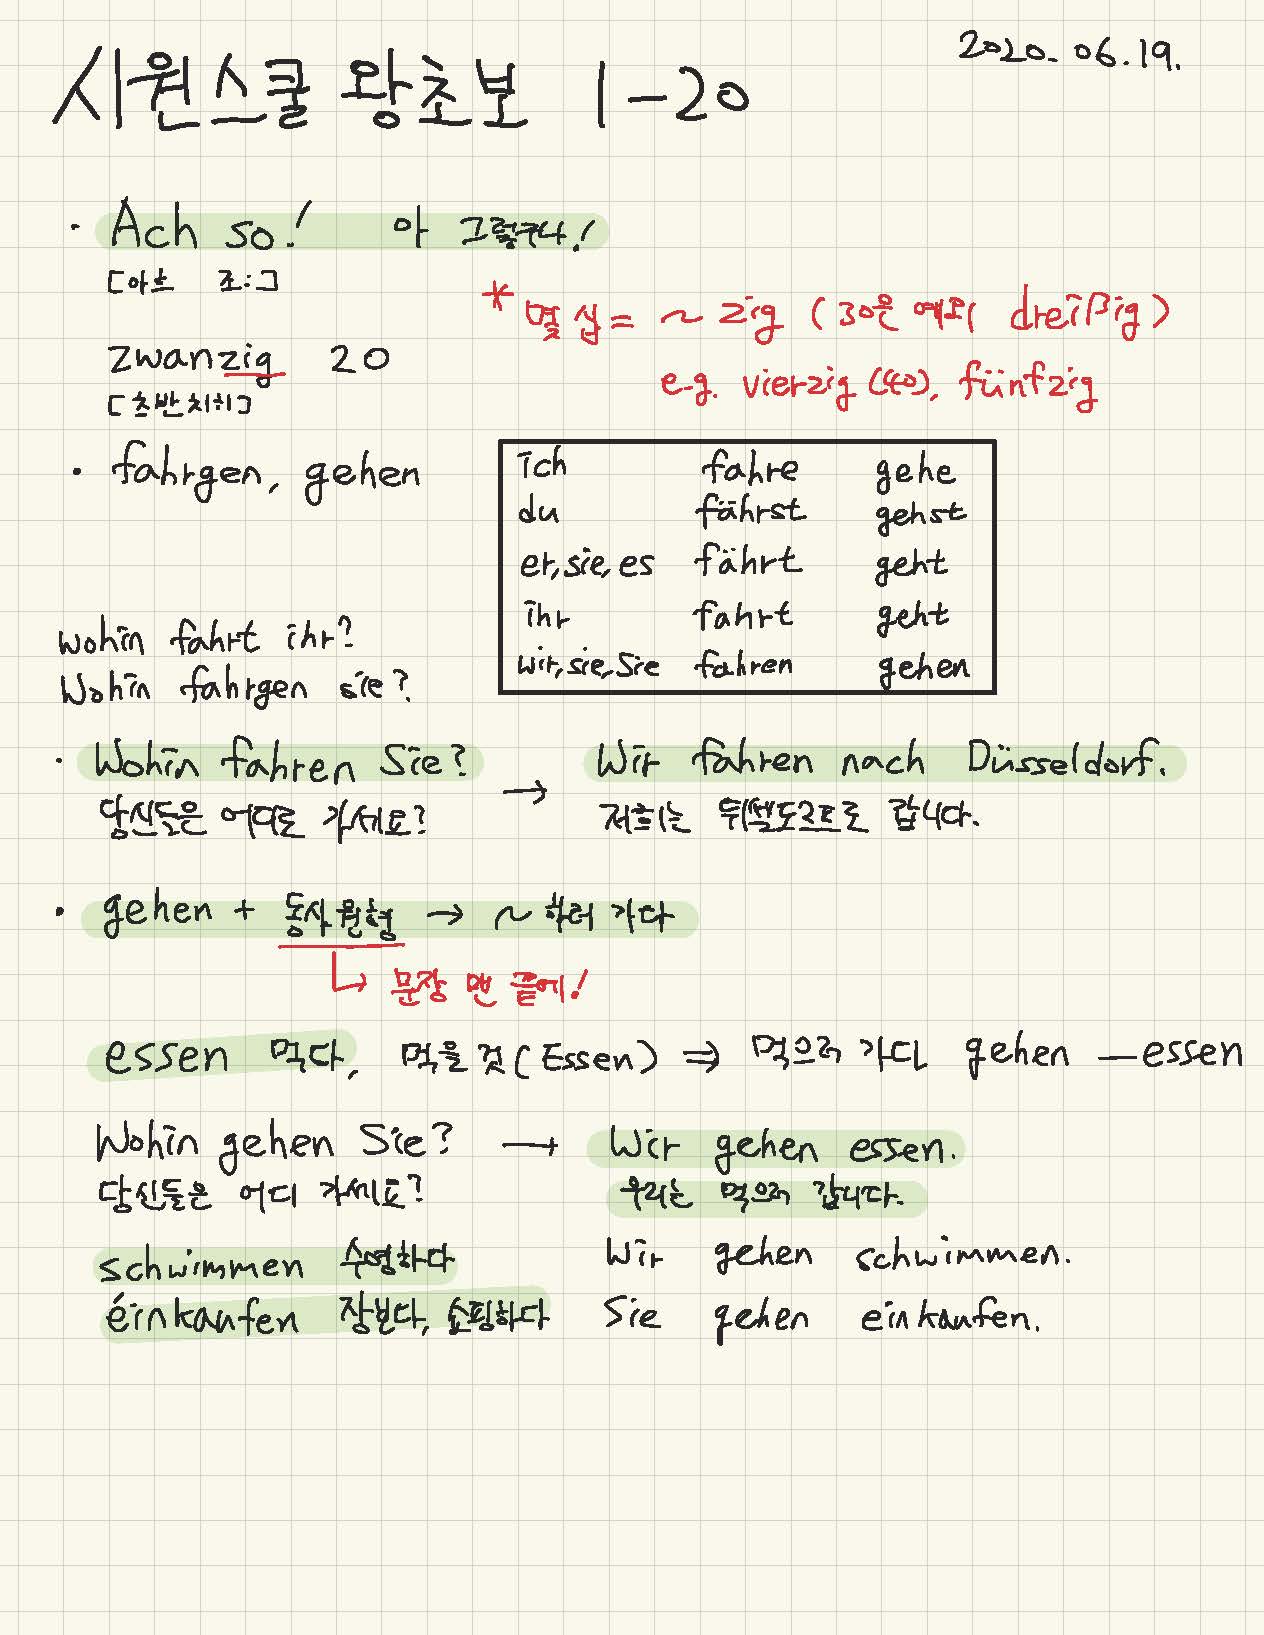 2020. 06. 19.
시원스쿨 왕초보 1-20
· Ach so! 아 그렇구나!
[아흐 조:]
* 몇 십 = ~ zig (30은 예외 dreißig)
zwanzig 20
e.g. vierzig (40), fünfzig
[츠반치히]
· fahrgen, gehen
ich fahre gehe
du fährst gehst
er, sie, es fährt geht
ihr fahrt geht
wir, sie, Sie fahren gehen
wohin fahrt ihr?
Wohin fahrgen sie?
· Wohin fahren Sie? → Wir fahren nach Düsseldorf.
당신들은 어디로 가세요? 저희는 뒤셀도르프로 갑니다.
· gehen + 동사원형 → ~하러 가다
↳ 문장 맨 끝에!
essen 먹다, 먹을 것 (Essen) ⇒ 먹으러 가다 gehen — essen
Wohin gehen Sie? → Wir gehen essen.
당신들은 어디 가세요? 우리는 먹으러 갑니다.
schwimmen 수영하다 Wir gehen schwimmen.
éinkaufen 장보다, 쇼핑하다 Sie gehen einkaufen.